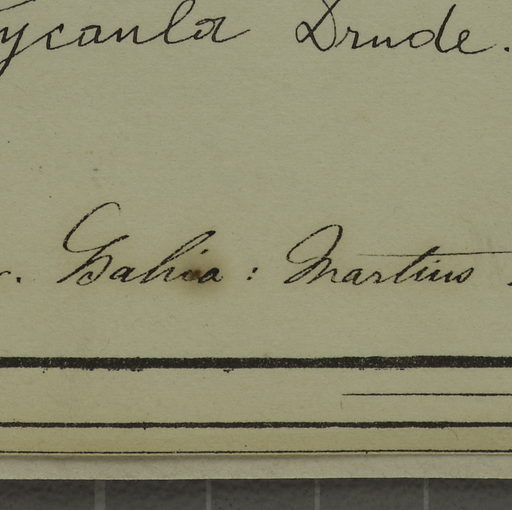 ycaula Drude.
. Bahia: Martius